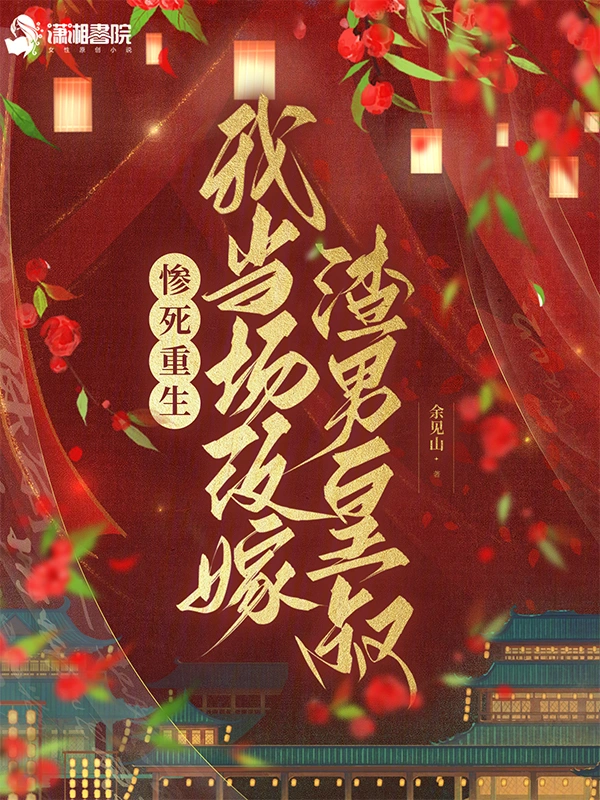 潇湘書院
女性原创小说
惨死重生
我当场改嫁
渣男皇叔
余见山·著